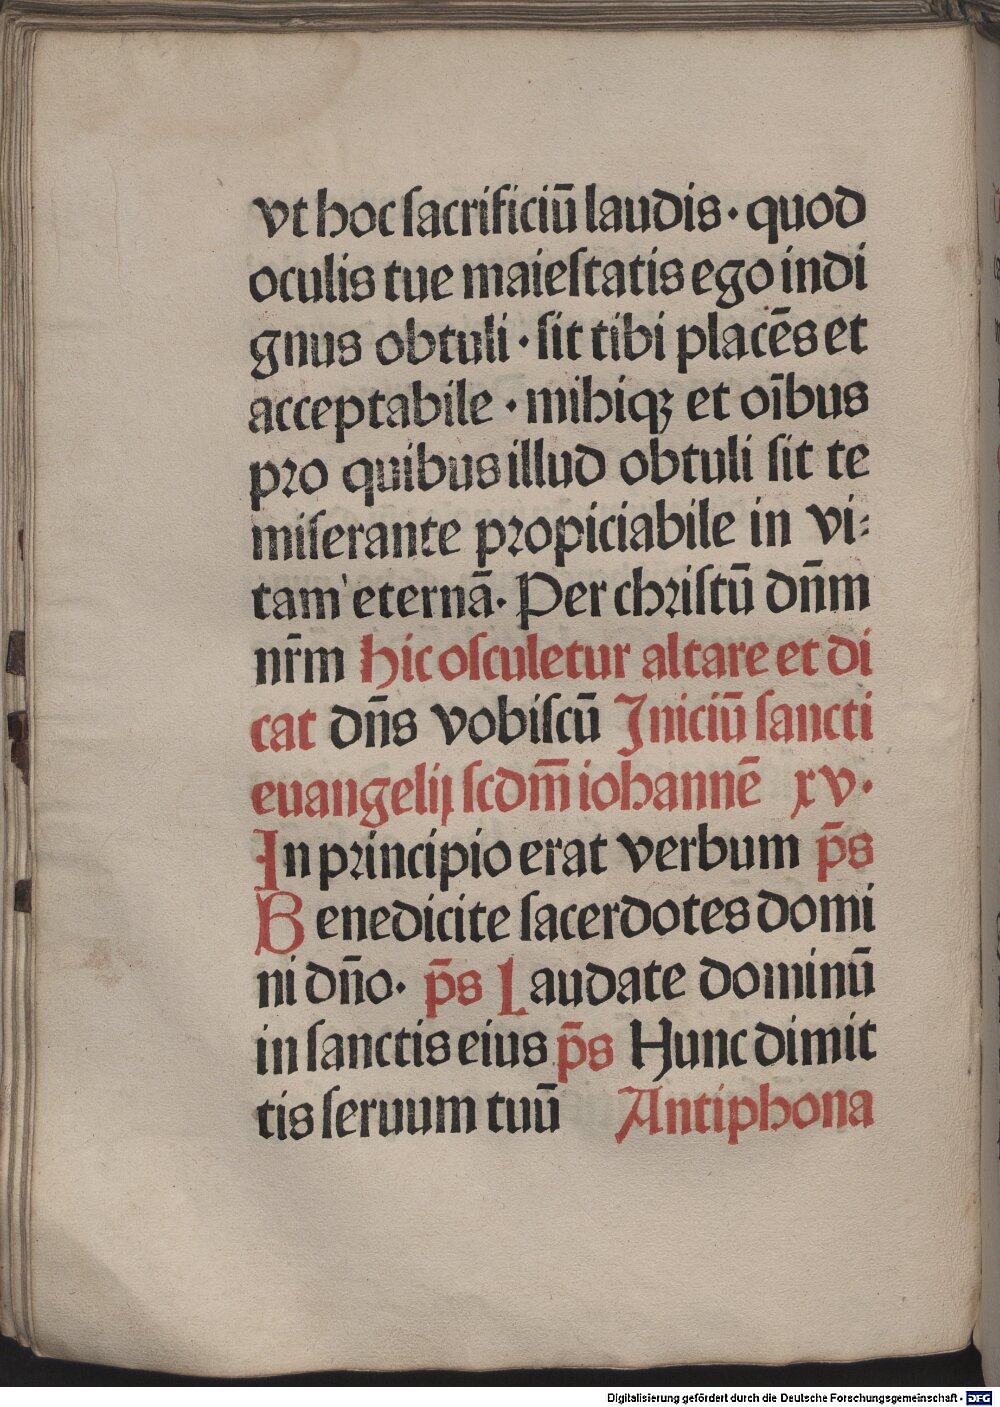 vt hoc ſacrificiū laudis · quod
oculis tue maieſtatis ego indi
gnus obtuli · ſit tibi placēs et
acceptabile · mihiqꝫ et oībus
pro quibus illud obtuli ſit te
miſerante propiciabile in vi⸗
tam eternā. Per chriſtū dn̄m
nr̄m hic oſculetur altare et di
cat dn̄s vobiſcū Iniciū ſancti
euangelij ſcdm̄ iohannē xv.
In principio erat verbum p̄s
Benedicite ſacerdotes domi
ni dn̄o. p̄s Laudate dominū
in ſanctis eius p̄s Hunc dimit
tis ſeruum tuū Antiphona
Digitalisierung gefördert durch die Deutsche Forschungsgemeinschaft - DFG